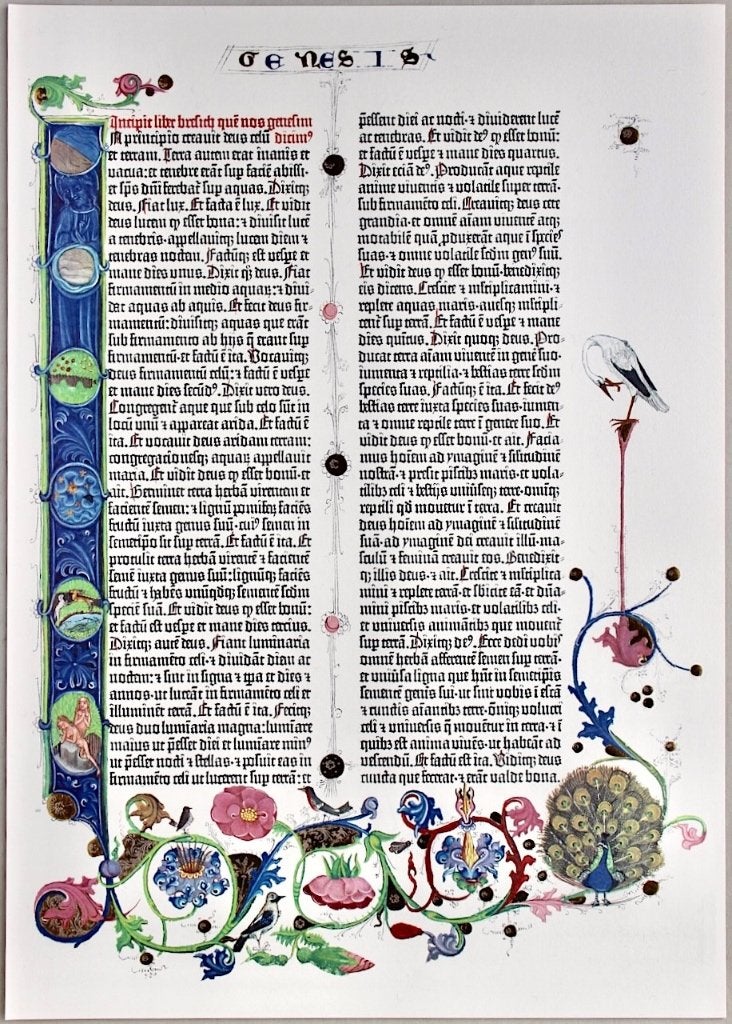 GENESIS
Incipit liber bresich quē nos genesim
In principio creavit deus celū dicim⁹
et terram. Terra autem erat inanis et
vacua: et tenebre erāt sup faciē abissi:
et spūs dn̄i ferebat̄ sup aquas. Dixitq̨
deus. Fiat lux. Et facta ē lux. Et vidit
deus lucem q̨ esset bona: ⁊ divisit lucē
a tenebris·appellavitq̨ lucem diem ⁊
tenebras noctem. Factūq̨ est vespe et
mane dies unus. Dixit q̨ deus. Fiat
firmamentū in medio aquar̨: ⁊ divi-
dat aquas ab aquis. Et fecit deus fir-
mamentū: divisitq̨ aquas que erāt
sub firmamento ab hijs q̄ erant sup
firmamentū: et factū ē ita. Vocavitq̨
deus firmamentū celū: ⁊ factū ē vespe
et mane dies secūd⁹. Dixit vero deus.
Congregent̄ aque que sub celo sūt in
locū unū ⁊ appareat arida. Et factū ē
ita. Et vocavit deus aridam terram:
congregacionesq̨ aquar̨ appellavit
maria. Et vidit deus q̨ esset bonū·et
ait. Germinet terra herbā virentem et
facientē semen: ⁊ lignū pomifer̨ faciēs
fructū iuxta genus suū·cui⁹ semen in
semetipo sit sup terrā. Et factū ē ita. Et
protulit terra herbā virentē ⁊ facientē
semē iuxta genus suū: lignūq̨ faciēs
fructū ⁊ habēs unūqdq̨ sementē sc̄dm
speciē suā. Et vidit deus q̨ esset bonū:
et factū est vespe et mane dies tercius.
Dixitq̨ autē deus. Fiant luminaria
in firmamēto celi·⁊ dividāt diem ac
noctem: ⁊ sint in signa ⁊ tp̄a et dies ⁊
annos·ut luceāt in firmamēto celi et
illuminēt terrā. Et factū ē ita. Fecitq̨
deus duo lumīaria magna: lumīare
maius ut p̄esset diei et lumīare min⁹
ut p̄esset nocti ⁊ stellas·⁊ posuit eas in
firmamēto celi ut lucerent sup terrā: et
p̄essent diei ac nocti·⁊ dividerent lucē
ac tenebras. Et vidit de⁹ q̨ esset bonū:
et factū ē vespe ⁊ mane dies quartus.
Dixit eciā de⁹. Producāt aque reptile
anime viventis ⁊ volatile super terrā·
sub firmamēto celi. Creavitq̨ deus cete
grandia·et omnē aīam viventē atq̨
motabilē quā p̄duxerāt aque ī species
suas·⁊ omne volatile sc̄dm gen⁹ suū.
Et vidit deus q̨ esset bonū·benedixitq̨
eis dicens. Crescite ⁊ mltiplicamini·⁊
replete aquas maris·avesq̨ mltipli-
cent̄ sup terrā. Et factū ē vespe ⁊ mane
dies quītus. Dixit quoq̨ deus. Pro-
ducat terra aīam viventē in genē suo·
iumenta ⁊ reptilia·⁊ bestias terre sc̄dm
species suas. Factūq̨ ē ita. Et fecit de⁹
bestias terre iuxta species suas·iumen-
ta ⁊ omne reptile terre ī genere suo. Et
vidit deus q̨ esset bonū·et ait. Facia-
mus hoīem ad ymaginē ⁊ similitudinē
nostrā·⁊ presit piscib⁊ maris·et vola-
tilib⁊ celi ⁊ bestijs universeq̨ terre·omniq̨
reptili qd̄ movetur ī terra. Et creavit
deus hoīem ad ymaginē ⁊ similitudinē
suā·ad ymaginē dei creavit illū·ma-
sculū ⁊ feminā creavit eos. Benedixit-
q̨ illis deus·⁊ ait. Crescite ⁊ mltiplica-
mini ⁊ replete terrā·et sbicite eā·et dn̄a-
mini piscib⁊ maris·et volatilib⁊ celi·
et universis animātib⁊ que moventur
sup terrā. Dixitq̨ de⁹. Ecce dedi vobis
omnē herbā afferentē semen sup terrā·
et universa ligna que hn̄t in semetipis
sementē genēis sui·ut sint vobis ī escā
⁊ cunctis aīantib⁊ terre·omniq̨ volucri
celi ⁊ universis q̄ moventur in terra·⁊ ī
quib⁊ est anima vivēs·ut habeāt ad
vescendū. Et factū est ita. Viditq̨ deus
cuncta que fecerat·⁊ erāt valde bona.